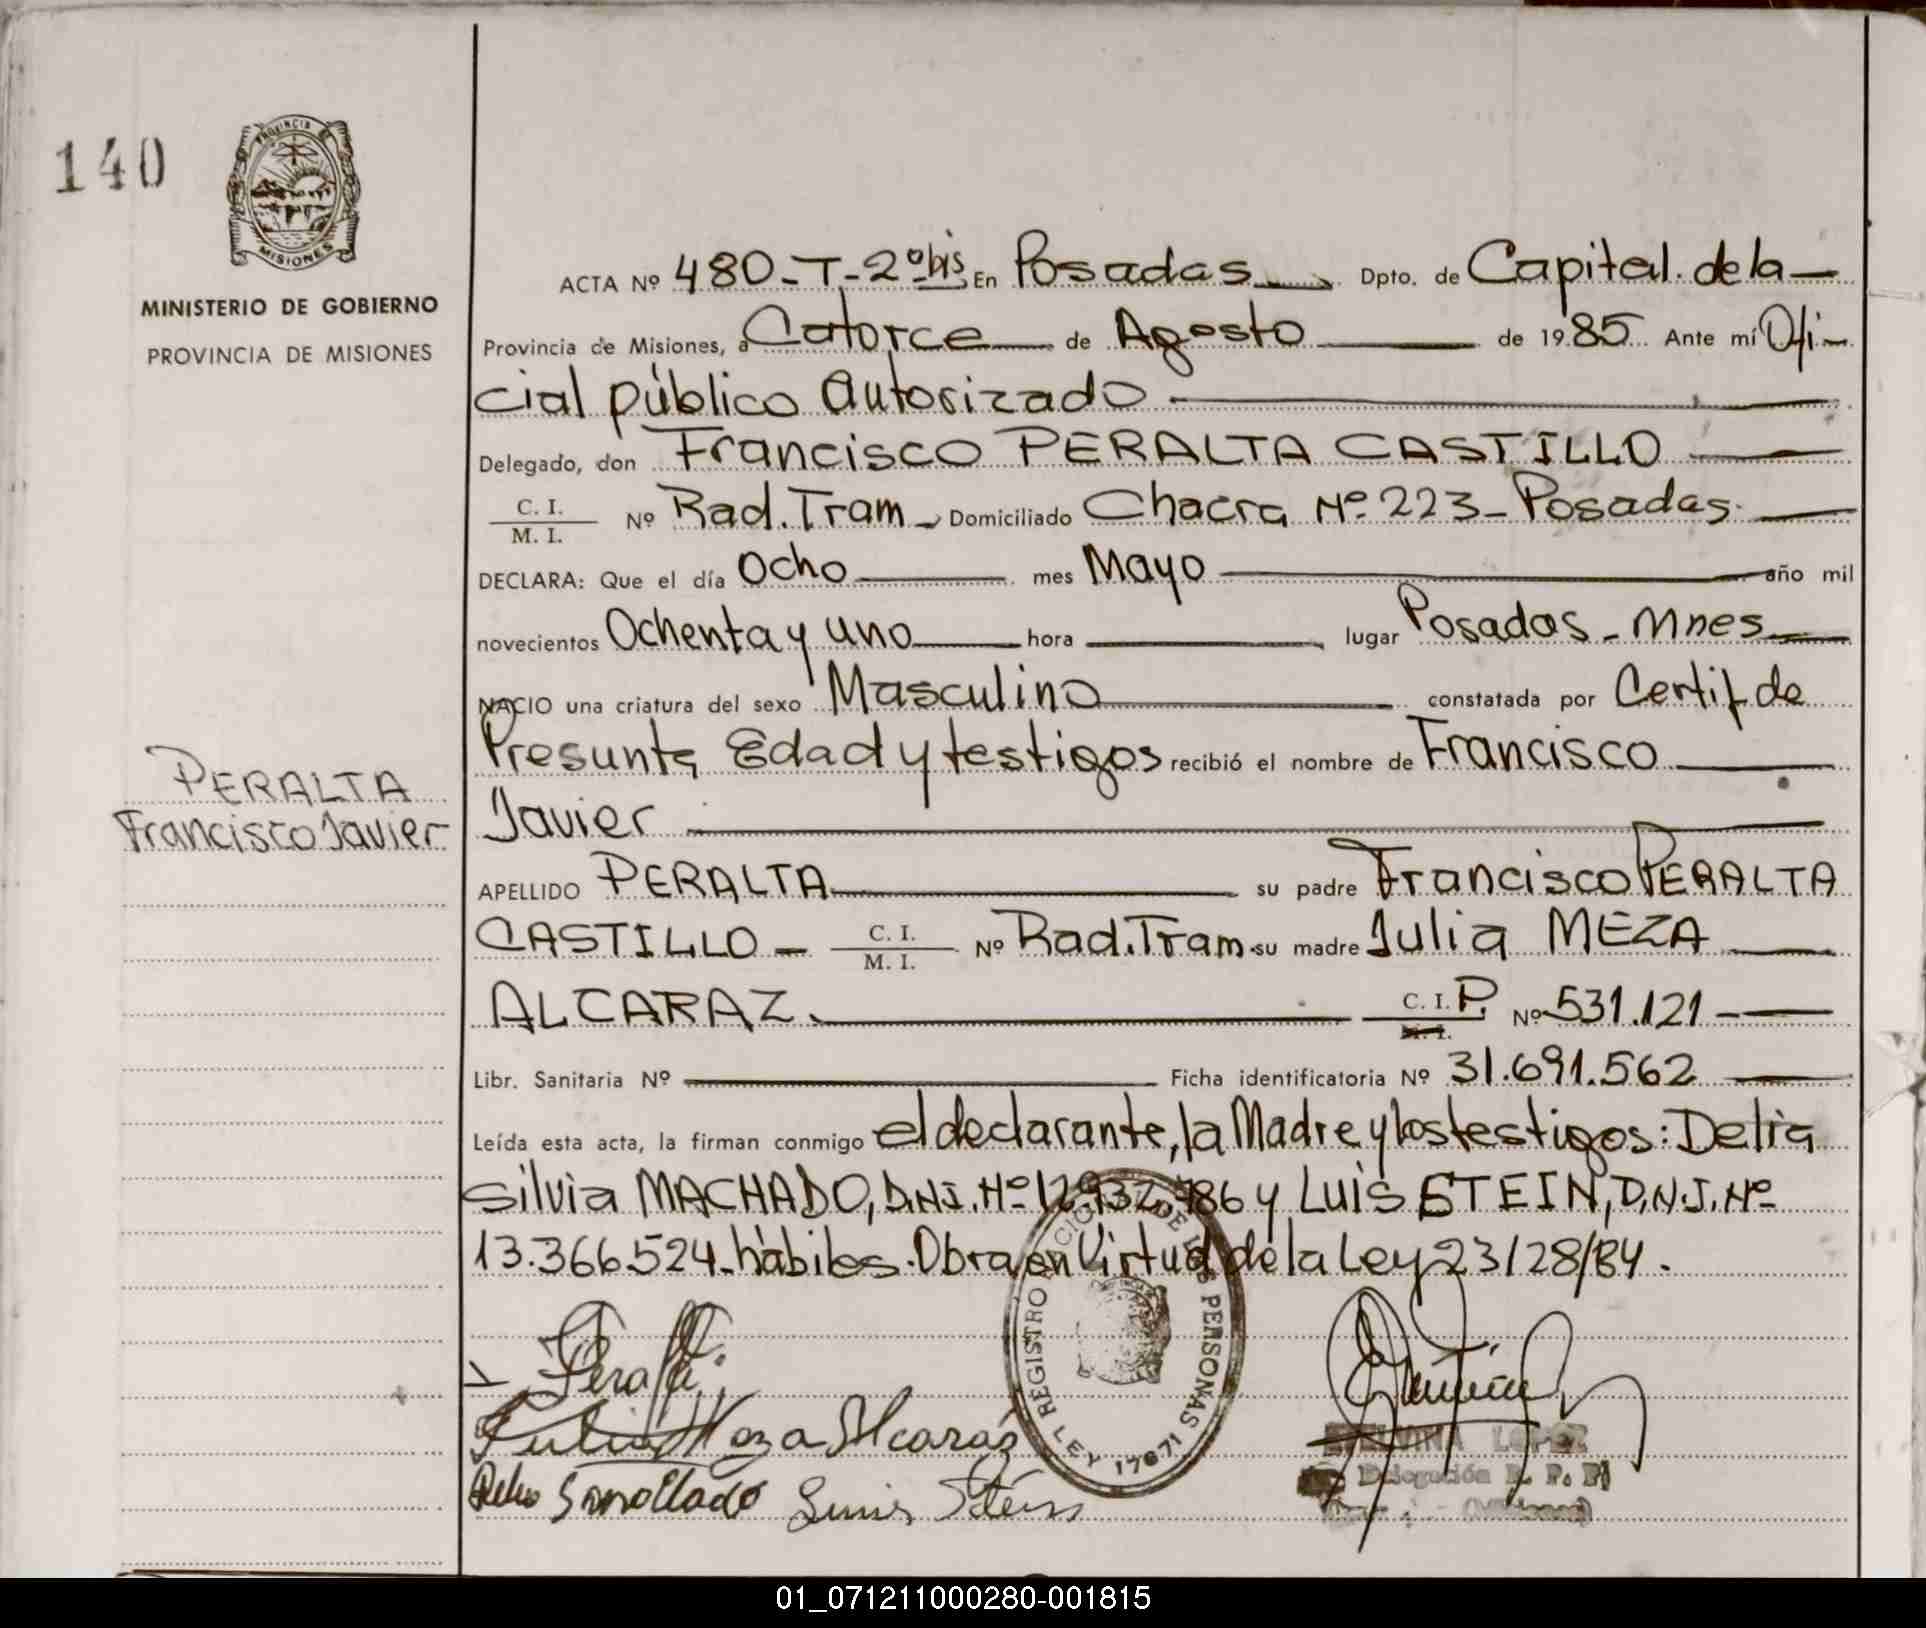 140
PROVINCIA DE
MISIONES
MINISTERIO DE GOBIERNO
PROVINCIA DE MISIONES
PERALTA
Francisco Javier
ACTA Nº 480-T-2º bis En Posadas Dpto. de Capital. de la
Provincia de Misiones, a Catorce de Agosto de 1985 Ante mí Ofi-
cial público Autorizado
Delegado, don Francisco PERALTA CASTILLO
C. I. / M. I. Nº Rad. Tram Domiciliado Chacra Nº 223 - Posadas
DECLARA: Que el día Ocho mes Mayo año mil
novecientos Ochenta y uno hora lugar Posadas - Mnes
NACIO una criatura del sexo Masculino constatada por Certif de
Presunta Edad y testigos recibió el nombre de Francisco
Javier
APELLIDO PERALTA su padre Francisco PERALTA
CASTILLO - C. I. / M. I. Nº Rad. Tram su madre Julia MEZA
ALCARAZ. C. I. P. / M. I. Nº 531.121
Libr. Sanitaria Nº Ficha identificatoria Nº 31.691.562
Leída esta acta, la firman conmigo el declarante, la Madre y los testigos: Delia
Silvia MACHADO, D.N.I. Nº 12.932.786 y LUIS STEIN, D.N.I. Nº
13.366.524 - hábiles. Obra en Virtud de la Ley 23128/84.
REGISTRO NACIONAL DE LAS PERSONAS
LEY 17671
Peralta
Julia Meza Alcaraz
Luis Stein
LOPEZ
Delegación R. P. P.
01_071211000280-001815